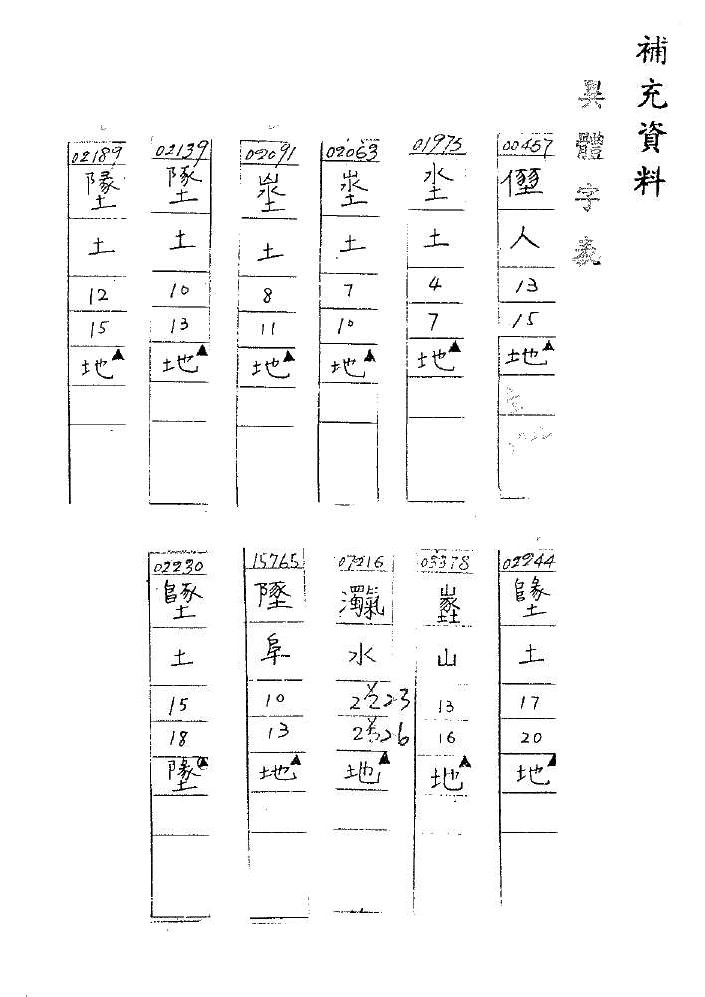 補充資料
異體字表
00457
人
13
15
地▲
01975
坔
土
4
7
地▲
02063
埊
土
7
10
地▲
02091
埊
土
8
11
地▲
02139
墬
土
10
13
地▲
02189
土
12
15
地▲
02244
土
17
20
地▲
03378
山
13
16
地▲
07216
水
23
26
地▲
15765
阜
10
13
地▲
02230
土
15
18